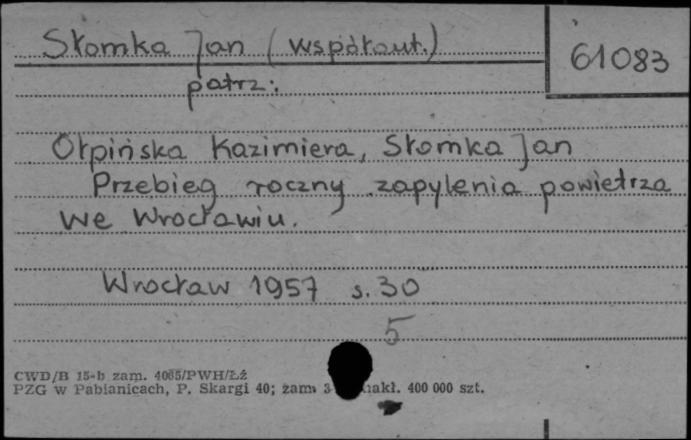 Słomka Jan (współaut.)
61083
patrz:
Ołpińska Kazimiera, Słomka Jan
Przebieg roczny zapylenia powietrza
we Wrocławiu.
Wrocław 1957 s. 30
5
CWD/B 15-b zam. 4085/PWH/Łź
PZG w Pabianicach, P. Skargi 40; zam. 3 nakł. 400 000 szt.